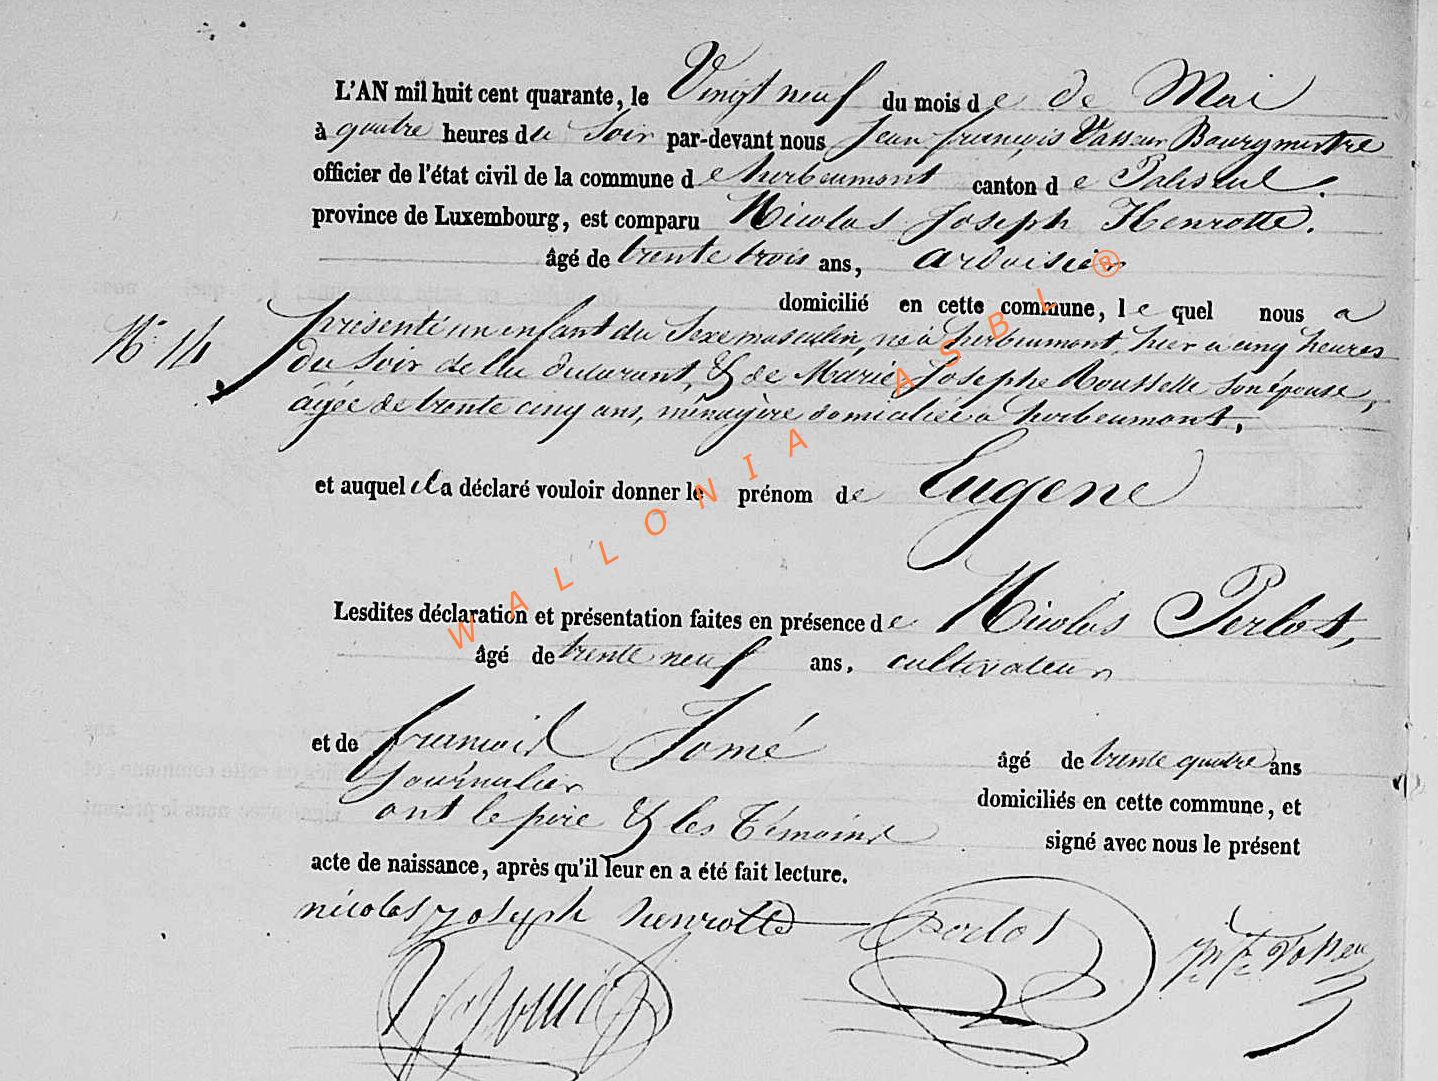 L'AN mil huit cent quarante, le Vingt neuf du mois de de Mai
à quatre heures du Soir par-devant nous Jean françois Vasseur Bourgmestre
officier de l'état civil de la commune de herbeumont canton de Paliseul.
province de Luxembourg, est comparu Nicolas Joseph Henrotte.
âgé de trente trois ans, ardoisier
domicilié en cette commune, lequel nous a
N° 14 présenté un enfant du Sexe masculin, né à herbeumont, hier a cinq heures
du Soir de lui déclarant, & de Marie Josephe Rousselle son épouse,
âgée de trente cinq ans, ménagère domiciliée a herbeumont,
et auquel il a déclaré vouloir donner le prénom de Eugene
Lesdites déclaration et présentation faites en présence de Nicolas Perlot,
âgé de trente neuf ans, cultivateur
et de francois Jomé âgé de trente quatre ans
Journalier domiciliés en cette commune, et
ont le père & les Témoins signé avec nous le présent
acte de naissance, après qu'il leur en a été fait lecture.
nicolas joseph henrotte Perlot
WALLONIA ASBL ®